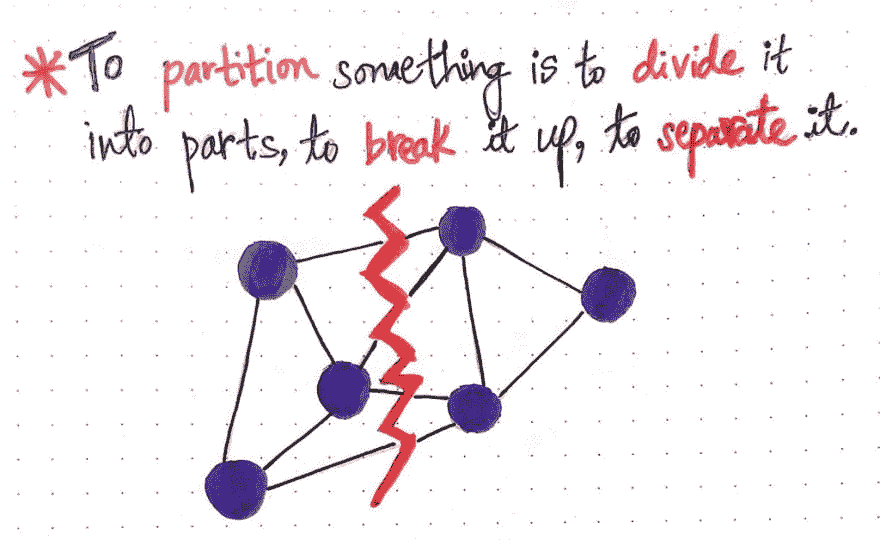 * To partition something is to divide it
into parts, to break it up, to separate it.